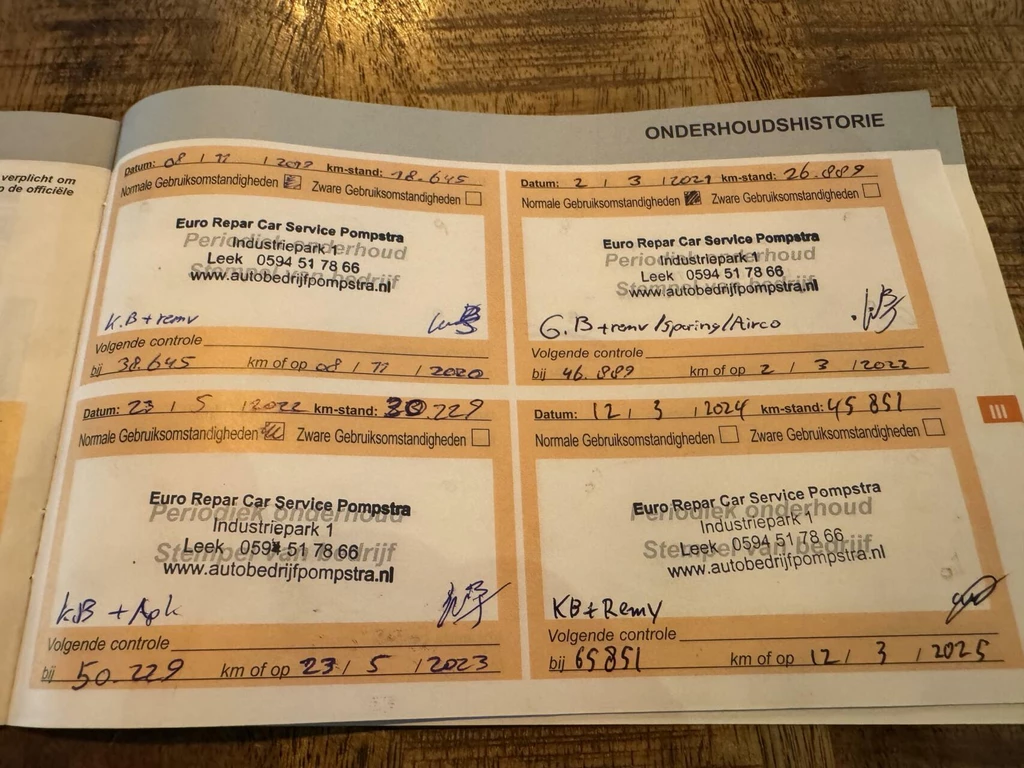 verplicht om
de officiële
ONDERHOUDSHISTORIE
Datum: 08 / 11 / 2019 km-stand: 18.645
Normale Gebruiksomstandigheden Zware Gebruiksomstandigheden
Euro Repar Car Service Pompstra
Periodiek onderhoud
Industriepark 1
Leek 0594 51 78 66
Stempel van bedrijf
www.autobedrijfpompstra.nl
K.B + remv
Volgende controle
bij 38.645 km of op 08 / 11 / 2020
Datum: 2 / 3 / 2021 km-stand: 26.889
Normale Gebruiksomstandigheden Zware Gebruiksomstandigheden
Euro Repar Car Service Pompstra
Periodiek onderhoud
Industriepark 1
Leek 0594 51 78 66
Stempel van bedrijf
www.autobedrijfpompstra.nl
G.B + remv /sparing/Airco
Volgende controle
bij 46.889 km of op 2 / 3 / 2022
Datum: 23 / 5 / 2022 km-stand: 30.229
Normale Gebruiksomstandigheden Zware Gebruiksomstandigheden
Euro Repar Car Service Pompstra
Periodiek onderhoud
Industriepark 1
Leek 0594 51 78 66
Stempel van bedrijf
www.autobedrijfpompstra.nl
K.B + Apk
Volgende controle
bij 50.229 km of op 23 / 5 / 2023
Datum: 12 / 3 / 2024 km-stand: 45 851
Normale Gebruiksomstandigheden Zware Gebruiksomstandigheden
Euro Repar Car Service Pompstra
Periodiek onderhoud
Industriepark 1
Leek 0594 51 78 66
Stempel van bedrijf
www.autobedrijfpompstra.nl
KB + Remv
Volgende controle
bij 65851 km of op 12 / 3 / 2025
III